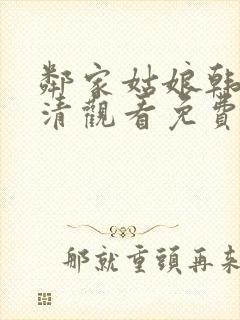 鄰家姑娘韩
清觀看免費
那就重頭再来